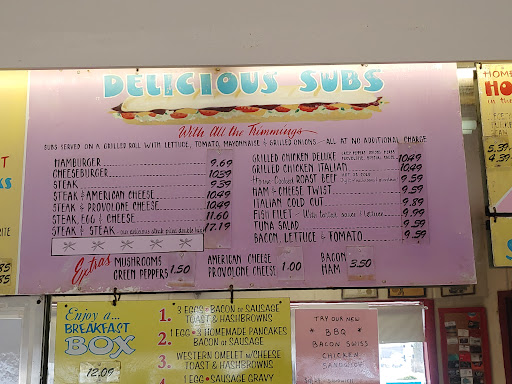 DELICIOUS SUBS
With All the Trimmings
SUBS SERVED ON A GRILLED ROLL WITH LETTUCE, TOMATO, MAYONNAISE & GRILLED ONIONS - ALL AT NO ADDITIONAL CHARGE
HAMBURGER 9.69
CHEESEBURGER 10.39
STEAK 9.39
STEAK & AMERICAN CHEESE 10.49
STEAK & PROVOLONE CHEESE 10.49
STEAK, EGG & CHEESE 11.60
STEAK & STEAK 17.19
GRILLED CHICKEN DELUXE 10.49
GRILLED CHICKEN ITALIAN 10.49
Home Cooked ROAST BEEF 9.59
HAM & CHEESE TWIST 9.59
ITALIAN COLD CUT 9.89
FISH FILET - With tartar sauce & lettuce 9.99
TUNA SALAD 9.59
BACON, LETTUCE & TOMATO 9.59
Extras
MUSHROOMS
GREEN PEPPERS 1.50
AMERICAN CHEESE
PROVOLONE CHEESE 1.00
BACON
HAM 3.50
Enjoy a...
BREAKFAST
BOX
12.09
1. 3 EGGS • BACON or SAUSAGE
TOAST & HASHBROWNS
2. 1 EGG • 3 HOMEMADE PANCAKES
BACON or SAUSAGE
3. WESTERN OMELET w/CHEESE
TOAST & HASHBROWNS
4. 1 EGG • SAUSAGE GRAVY
TRY OUR NEW
* BBQ *
BACON SWISS
CHICKEN
SANDWICH
HOME
HO
5.39
4.3